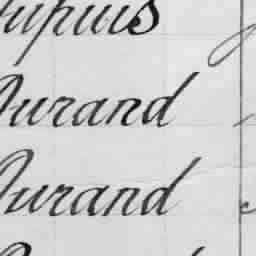 Dupuis
Durand
Durand